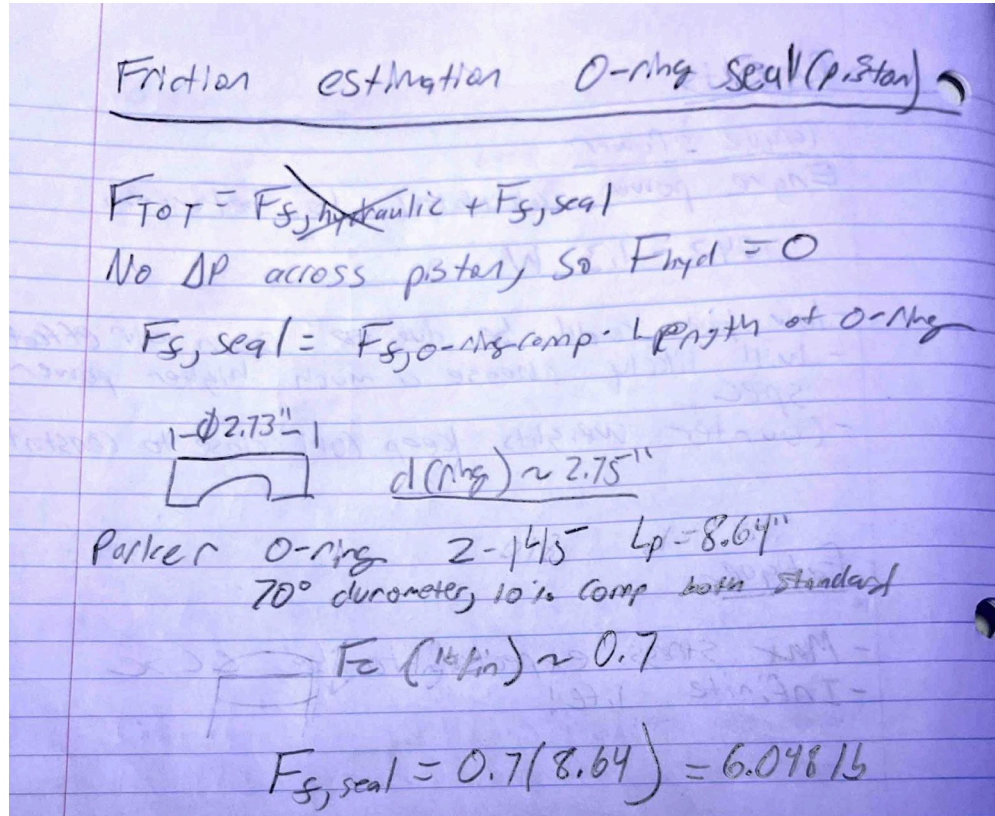 Friction estimation O-ring seal (piston)
F_TOT = F_f,hydraulic + F_f,seal
No ΔP across piston, so F_hyd = 0
F_f,seal = F_f,o-ring comp · Length of O-ring
|-Ø2.73"-|
d(ring) ~ 2.75"
Parker O-ring 2-145 Lp = 8.64"
70° durometer, 10% comp both standard
Fc (lb/in) ~ 0.7
F_f,seal = 0.7(8.64) = 6.048 lb